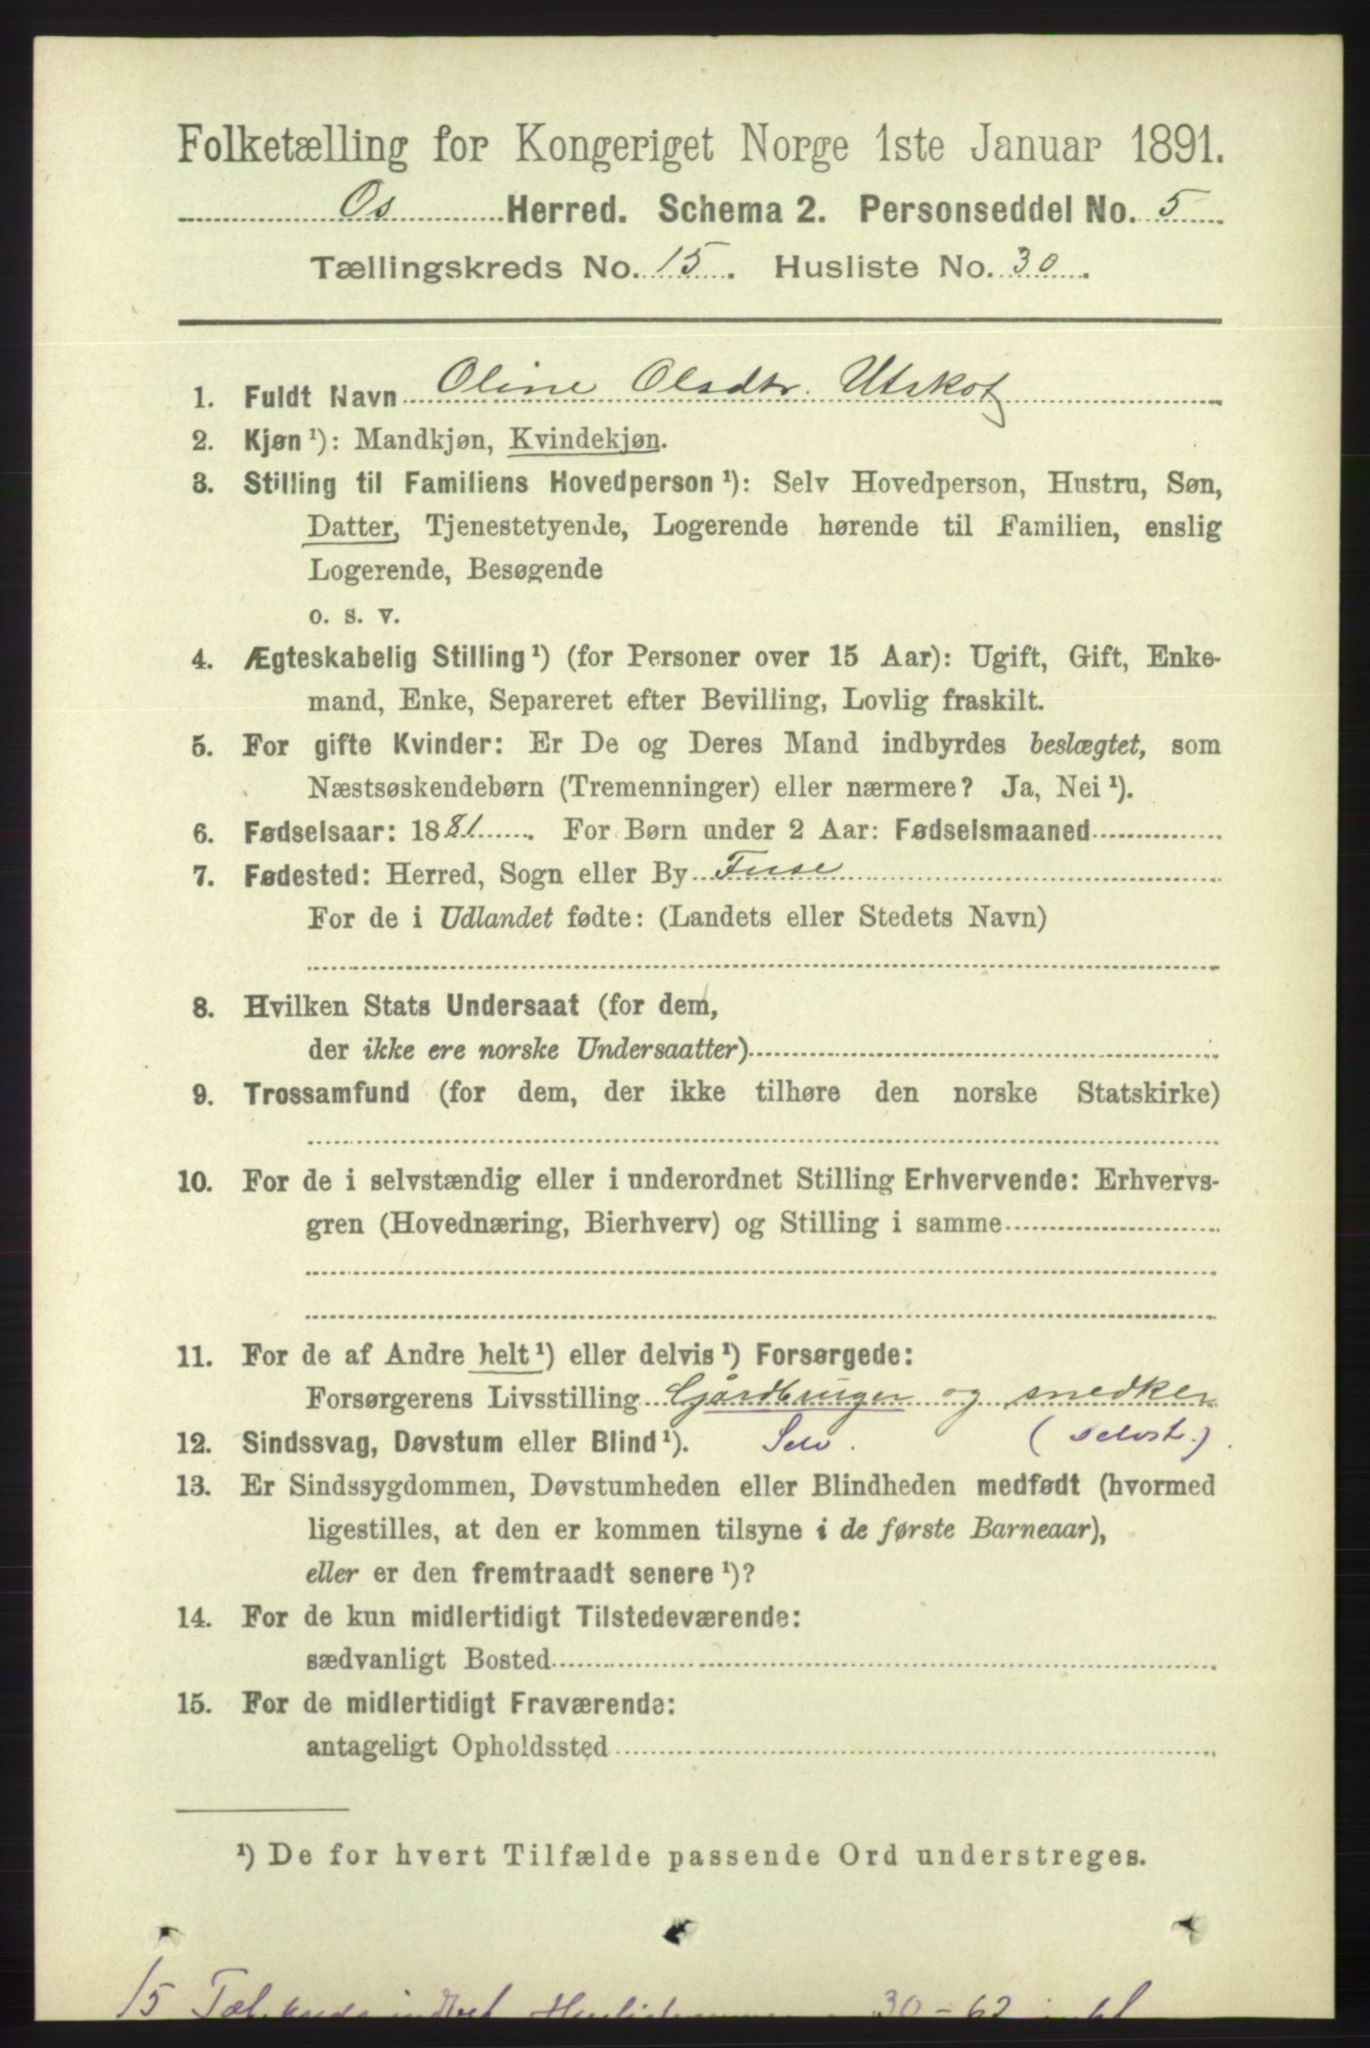 Folketælling for Kongeriget Norge 1ste Januar 1891.
Os Herred. Schema 2. Personseddel No. 5
Tællingskreds No. 15. Husliste No. 30.
1. Fuldt Navn Oline Olsdtr. Utskot
2. Kjøn¹): Mandkjøn, Kvindekjøn.
3. Stilling til Familiens Hovedperson¹): Selv Hovedperson, Hustru, Søn,
Datter, Tjenestetyende, Logerende hørende til Familien, enslig
Logerende, Besøgende
o. s. v.
4. Ægteskabelig Stilling¹) (for Personer over 15 Aar): Ugift, Gift, Enke-
mand, Enke, Separeret efter Bevilling, Lovlig fraskilt.
5. For gifte Kvinder: Er De og Deres Mand indbyrdes beslægtet, som
Næstsøskendebørn (Tremenninger) eller nærmere? Ja, Nei¹).
6. Fødselsaar: 1881. For Børn under 2 Aar: Fødselsmaaned
7. Fødested: Herred, Sogn eller By Fuse
For de i Udlandet fødte: (Landets eller Stedets Navn)
8. Hvilken Stats Undersaat (for dem,
der ikke ere norske Undersaatter)
9. Trossamfund (for dem, der ikke tilhøre den norske Statskirke)
10. For de i selvstændig eller i underordnet Stilling Erhvervende: Erhvervs-
gren (Hovednæring, Bierhverv) og Stilling i samme
11. For de af Andre helt¹) eller delvis¹) Forsørgede:
Forsørgerens Livsstilling Gårdbruger og snedker
12. Sindssvag, Døvstum eller Blind¹). Selv. (selvst.).
13. Er Sindssygdommen, Døvstumheden eller Blindheden medfødt (hvormed
ligestilles, at den er kommen tilsyne i de første Barneaar),
eller er den fremtraadt senere¹)?
14. For de kun midlertidigt Tilstedeværende:
sædvanligt Bosted
15. For de midlertidigt Fraværende:
antageligt Opholdssted
¹) De for hvert Tilfælde passende Ord understreges.
15 30-62